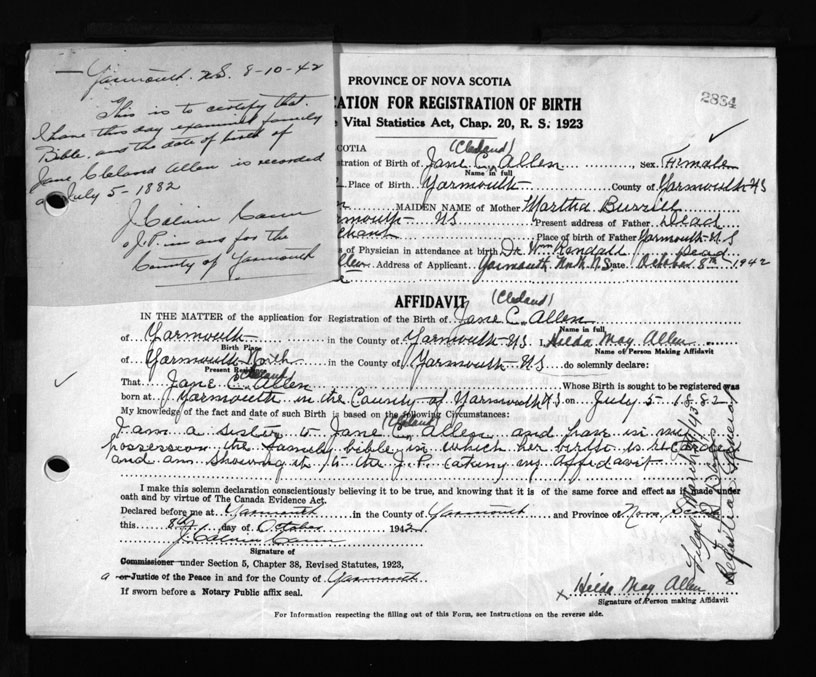 Yarmouth. N.S. 8-10-42
This is to certify that
I have this day examined family
Bible, and the date of birth of
Jane Cleland Allen is recorded
as July 5-1882
J. Calvin Cann
a J.P. in and for the
County of Yarmouth
PROVINCE OF NOVA SCOTIA
2834
CATION FOR REGISTRATION OF BIRTH
Vital Statistics Act, Chap. 20, R. S. 1923
(Cleland)
COTIA
stration of Birth of Jane C. Allen, Sex Female
Name in full
Place of Birth Yarmouth County of Yarmouth NS
MAIDEN NAME of Mother Martha Burrill
rmouth NS Present address of Father Dead
chant Place of birth of Father Yarmouth N S
s of Physician in attendance at birth Dr. Wm Kendall Dead
Allen Address of Applicant Yarmouth North N.S. Date October 8th 1942
AFFIDAVIT
(Cleland)
IN THE MATTER of the application for Registration of the Birth of Jane C. Allen
Name in full
of Yarmouth in the County of Yarmouth NS I, Hilda May Allen
Birth Place Name of Person Making Affidavit
of Yarmouth North in the County of Yarmouth NS do solemnly declare:
Present Resi
Cleland
That Jane C. Allen Whose Birth is sought to be registered was
born at Yarmouth in the County of Yarmouth NS on July 5 1882
My knowledge of the fact and date of such Birth is based on the following Circumstances:
(Cleland)
I am a sister to Jane C. Allen and have in my
possession the family bible in which her birth is recorded
and am showing it to the J.P. taking my affidavit
I make this solemn declaration conscientiously believing it to be true, and knowing that it is of the same force and effect as if made under
oath and by virtue of The Canada Evidence Act.
Declared before me at Yarmouth in the County of Yarmouth and Province of Nova
this 8th day of October 1942
J. Calvin Cann
Signature of
Commissioner under Section 5, Chapter 38, Revised Statutes, 1923,
a or Justice of the Peace in and for the County of Yarmouth
If sworn before a Notary Public affix seal.
x Hilda May Allen
Signature of Person making Affidavit
For Information respecting the filling out of this Form, see Instructions on the reverse side.
Registrar General